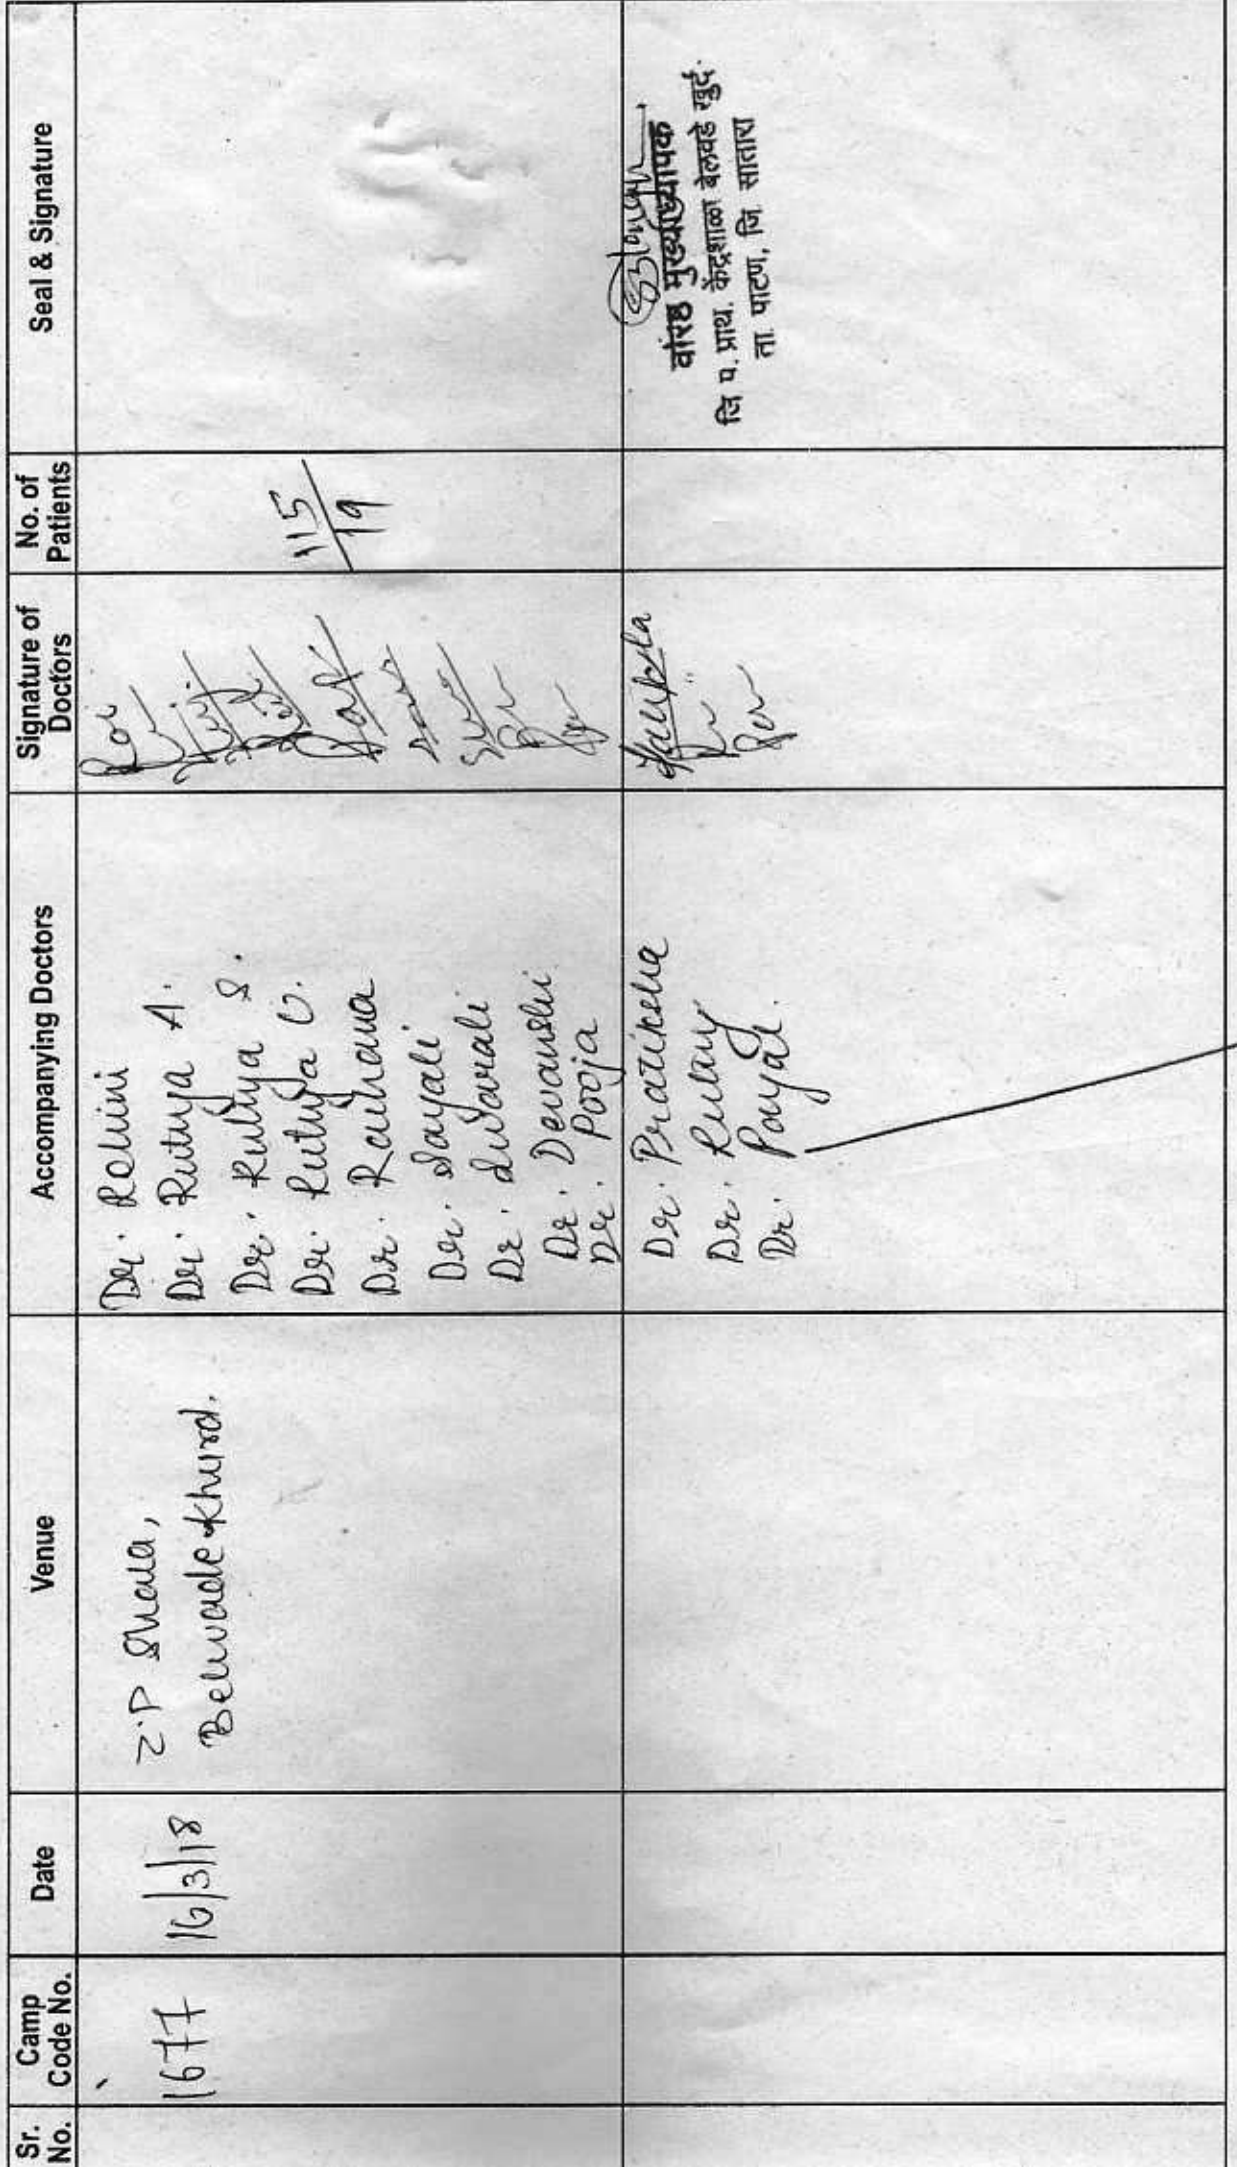 Sr. No.
Camp Code No.
Date
Venue
Accompanying Doctors
Signature of Doctors
No. of Patients
Seal & Signature
1677
16/3/18
Z.P Shala,
Belwade Khurd.
Dr. Rohini
Dr. Rutuja A.
Dr. Rutuja S.
Dr. Rutuja V.
Dr. Raihana
Dr. Sayali
Dr. Swarali
Dr. Devanshi
Dr. Pooja
115/19
Dr. Pratiksha
Dr. Rutuj
Dr. Payal.
वरिष्ठ मुख्याध्यापक
जि प. प्राथ. केंद्रशाळा बेलवडे खुर्द.
ता. पाटण, जि सातारा